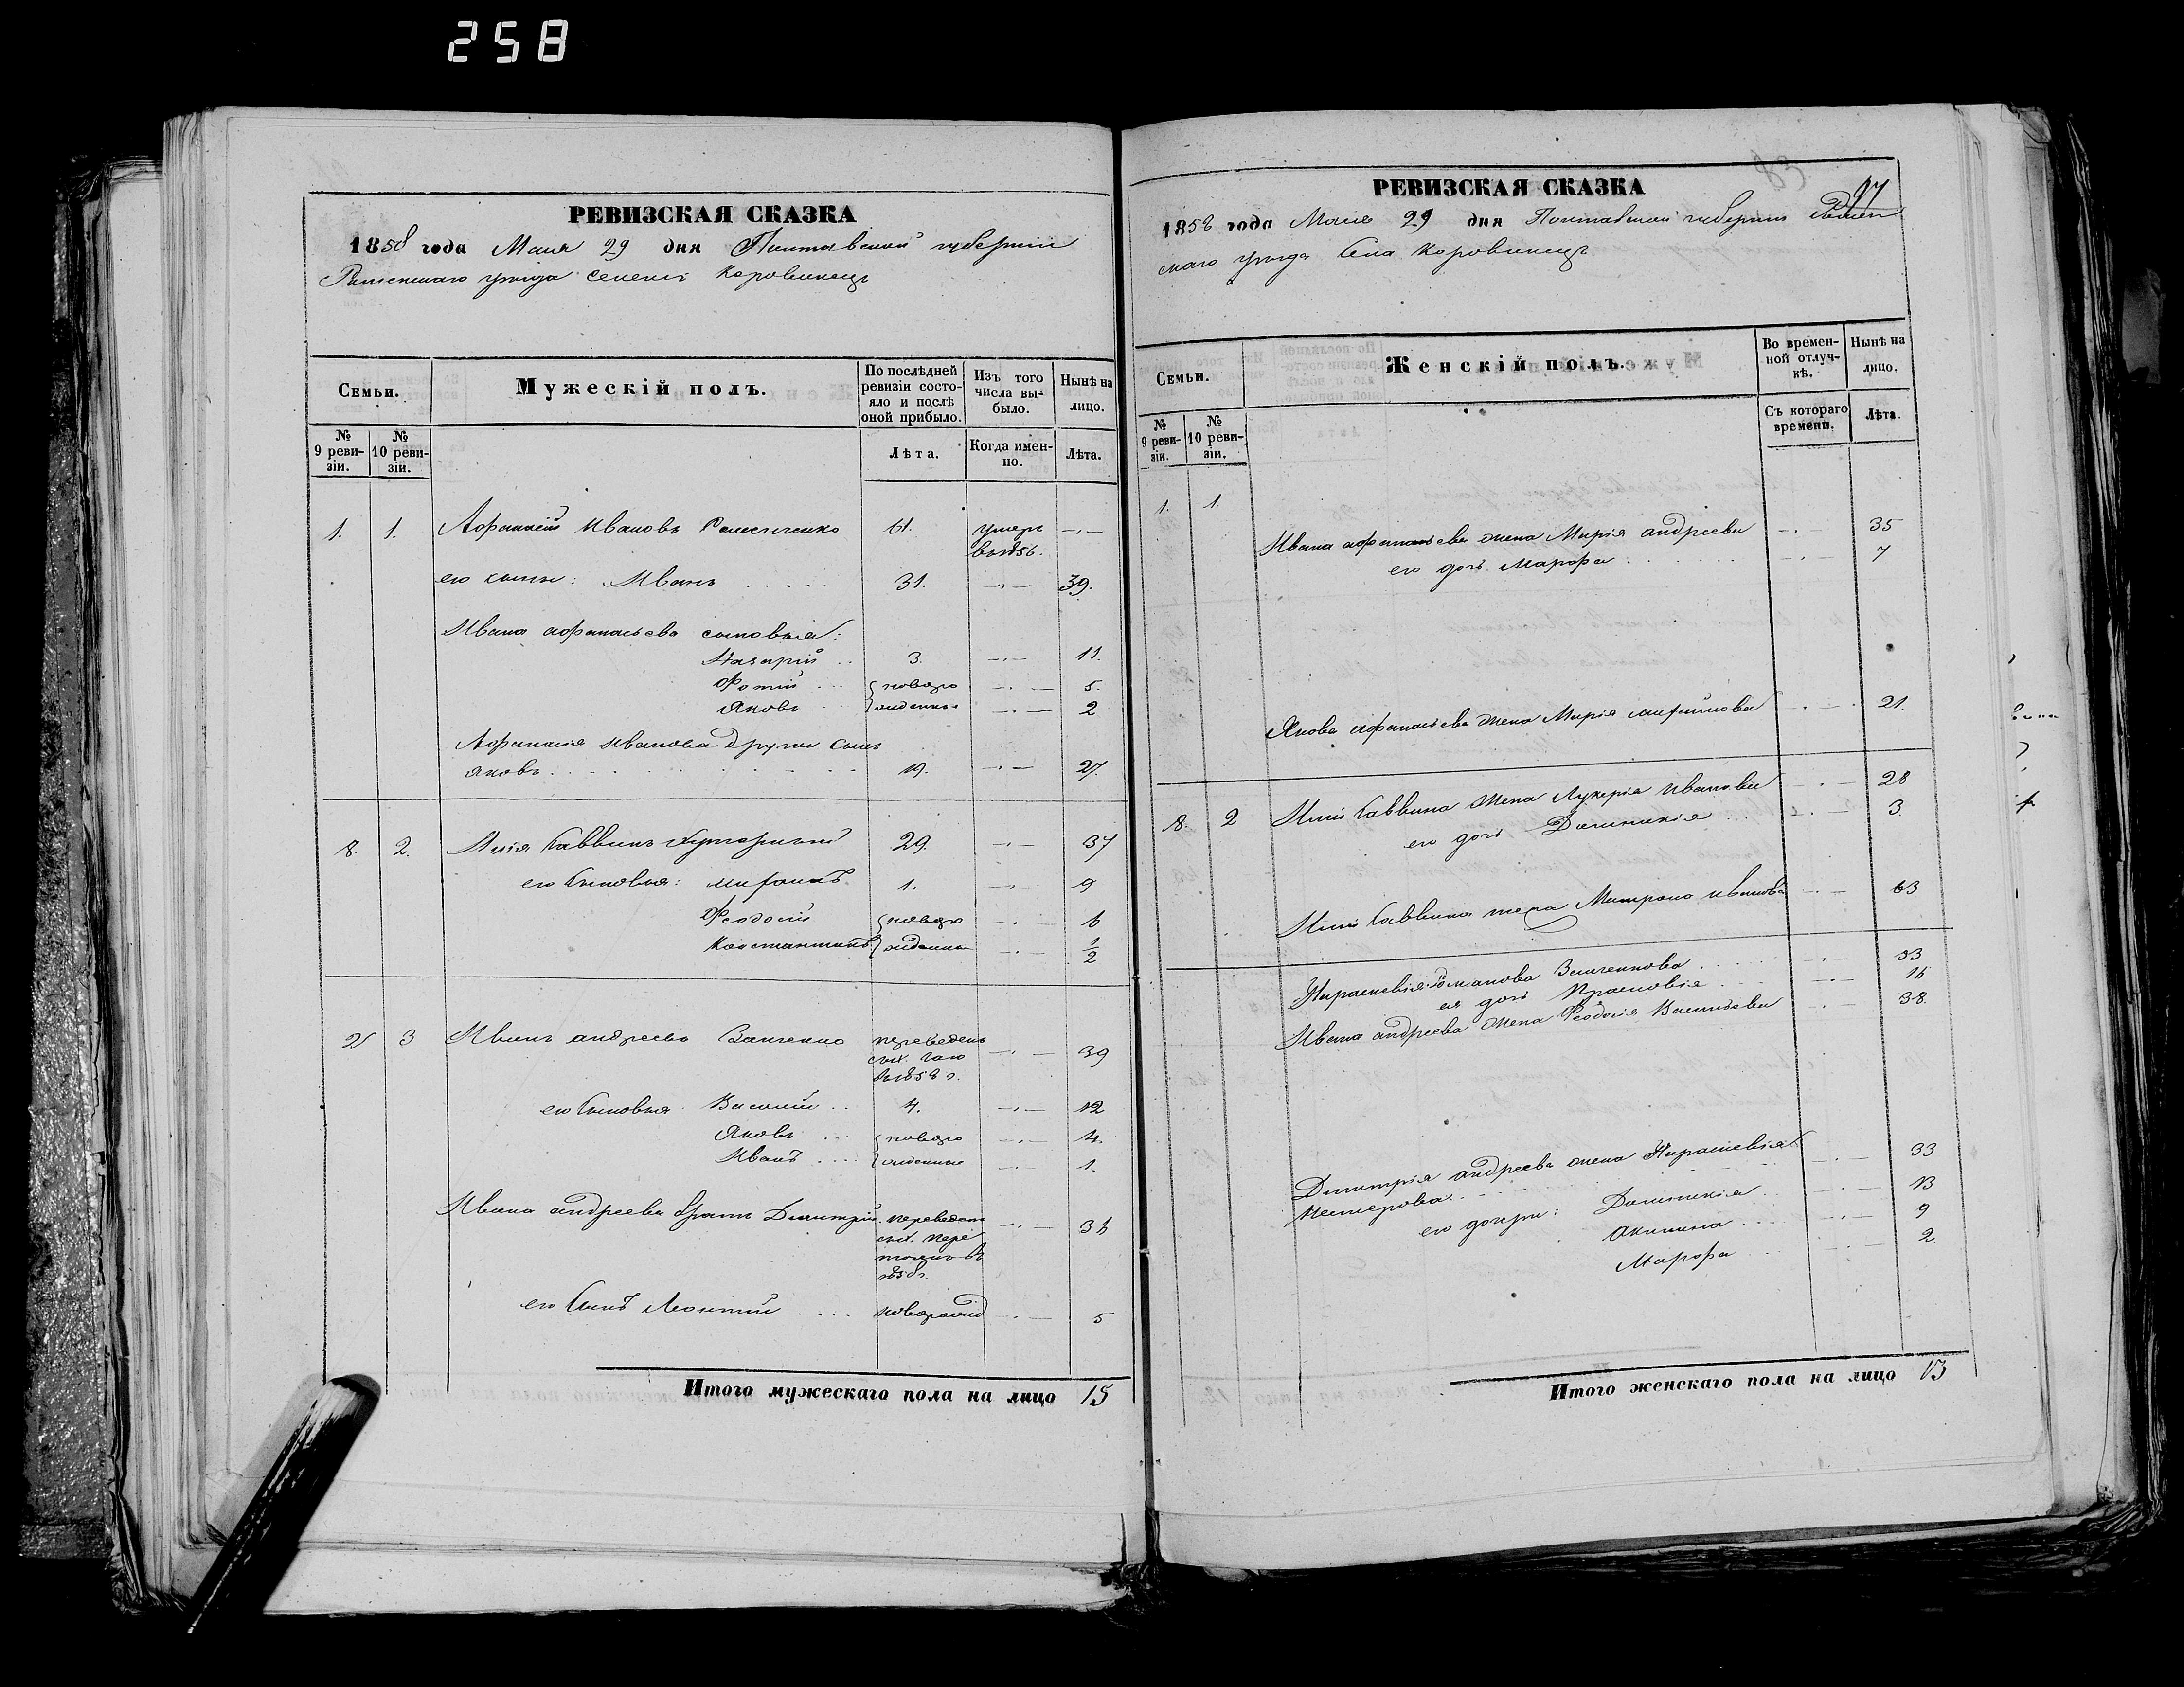 258
РЕВИЗСКАЯ СКАЗКА
1858 года Мая 29 дня Полтавской губернии
Роменскаго уезда селения Коровинец
Семьи.
Мужескій полъ.
По послѣдней ревизіи состояло и послѣ оной прибыло.
Изъ того числа выбыло.
Нынѣ на лицо.
№ 9 ревизіи.
№ 10 ревизіи.
Лѣта.
Когда именно.
Лѣта.
1. 1. Афанасій Ивановъ 61. умеръ —
в 1856.
его сынъ: Иванъ 31. — 39.
Ивана Афанасьева сыновья:
Назарій 3. — 11.
Фотій новоро — 5.
Яковъ жденные — 2
Афанасія Иванова другий сынъ
Яковъ 19. — 27.
8. 2. Илія Саввинъ 29. — 37
его сыновья: 1. — 9
Феодосій новоро — 6
Константинъ жденные — 1/2
25 3 Иванъ Андреевъ Ванченко переведенъ — 39
его сыновья Василий 4. — 12
Яковъ новоро — 4.
Иванъ жденные — 1.
Ивана Андреева братъ Димитрій переведен — 36
его сынъ Леонтій новорожд — 5
Итого мужескаго пола на лицо 15
83
97
РЕВИЗСКАЯ СКАЗКА
1858 года Мая 29 дня Полтавской губернии Ромен
скаго уезда села Коровинец
Семьи.
Женскій полъ.
Во временной отлучкѣ.
Нынѣ на лицо.
№ 9 ревизіи.
№ 10 ревизіи.
Съ котораго времени.
Лѣта.
1. 1
Ивана Афанасьева жена Марія Андреева — 35
его дочь Марфа — 7
Якова Афанасьева жена Марія — 21.
8. 2 Иліи Саввина жена Лукерія Иванова — 28
его дочь Домникія — 3.
Иліи Саввина Матрона Иванова — 63
Параскевія Романова Ванченкова — 53
ея дочь Прасковія — 16
Ивана Андреева жена Феодосія Васильева — 38
Димитрія Андреева жена Параскевія
Нестерова — 33
его дочери: Домникія — 13
Акилина — 9
Марфа — 2
Итого женскаго пола на лицо 13